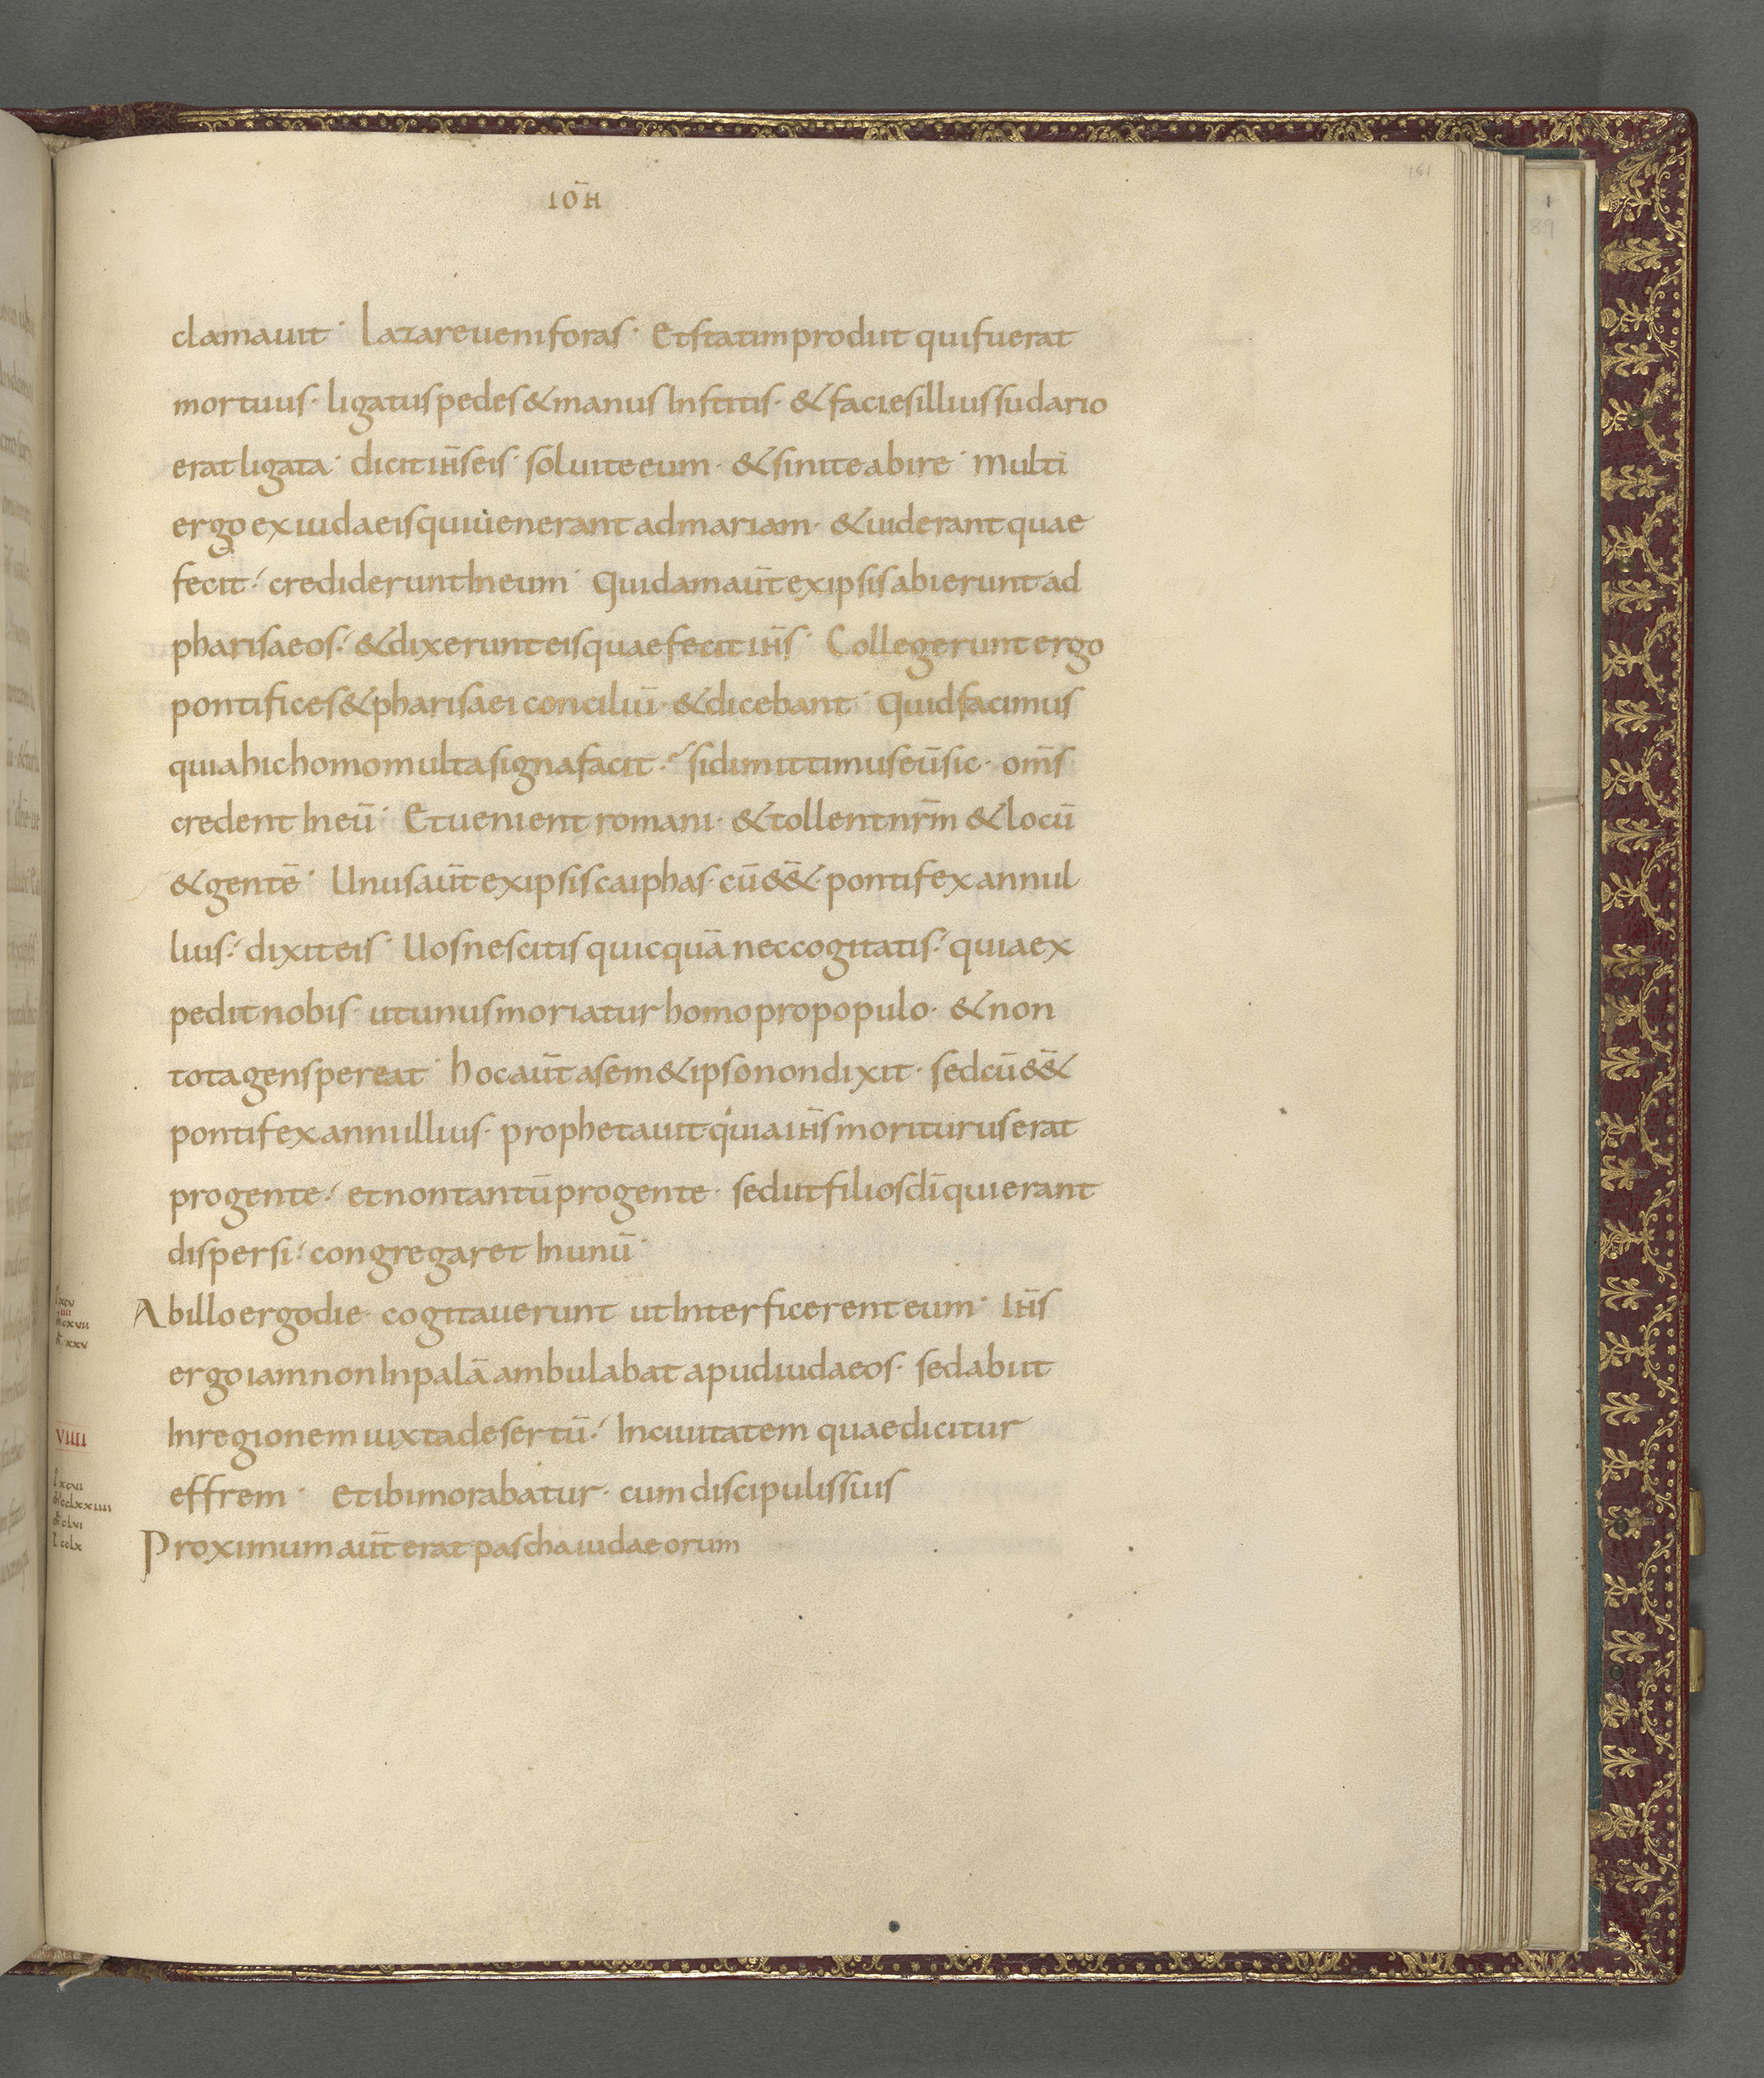 IOH̄
161
89
clamauit· Lazare ueni foras· Et statim prodiit qui fuerat
mortuus· ligatus pedes & manus Institis· & facies illius sudario
erat ligata· dicit ih̄s eis· soluite eum· & sinite abire· Multi
ergo ex iudaeis qui uenerant ad mariam· & uiderant quae
fecit· crediderunt In eum· Quidam aūt ex ipsis abierunt ad
pharisaeos· & dixerunt eis quae fecit ih̄s· Collegerunt ergo
pontifices & pharisaei conciliū· & dicebant· Quid facimus
quia hic homo multa signa facit· si dimittimus eū sic· om̄s
credent In eū· Et uenient romani· & tollent nr̄m & locū
& gentē· Unus aūt ex ipsis caiphas· cū e&̄· pontifex annul
lius· dixit eis· Uos nescitis quicquā nec cogitatis· quia ex
pedit nobis· ut unus moriatur homo pro populo· & non
tota gens pereat· hoc aūt a sem&ipso non dixit· sed cū e&̄
pontifex annullius· prophetauit quia ih̄s moriturus erat
pro gente· et non tantū pro gente· sed ut filios dī qui erant
dispersi· congregaret In unū·
Ab illo ergo die· cogitauerunt ut Interficerent eum· Ih̄s
ergo iam non In palā ambulabat apud iudaeos· sed abiit
In regionem iuxta desertū· In ciuitatem quae dicitur
effrem· Et ibi morabatur· cum discipulis suis
Proximum aūt erat pascha iudaeorum
VIIII